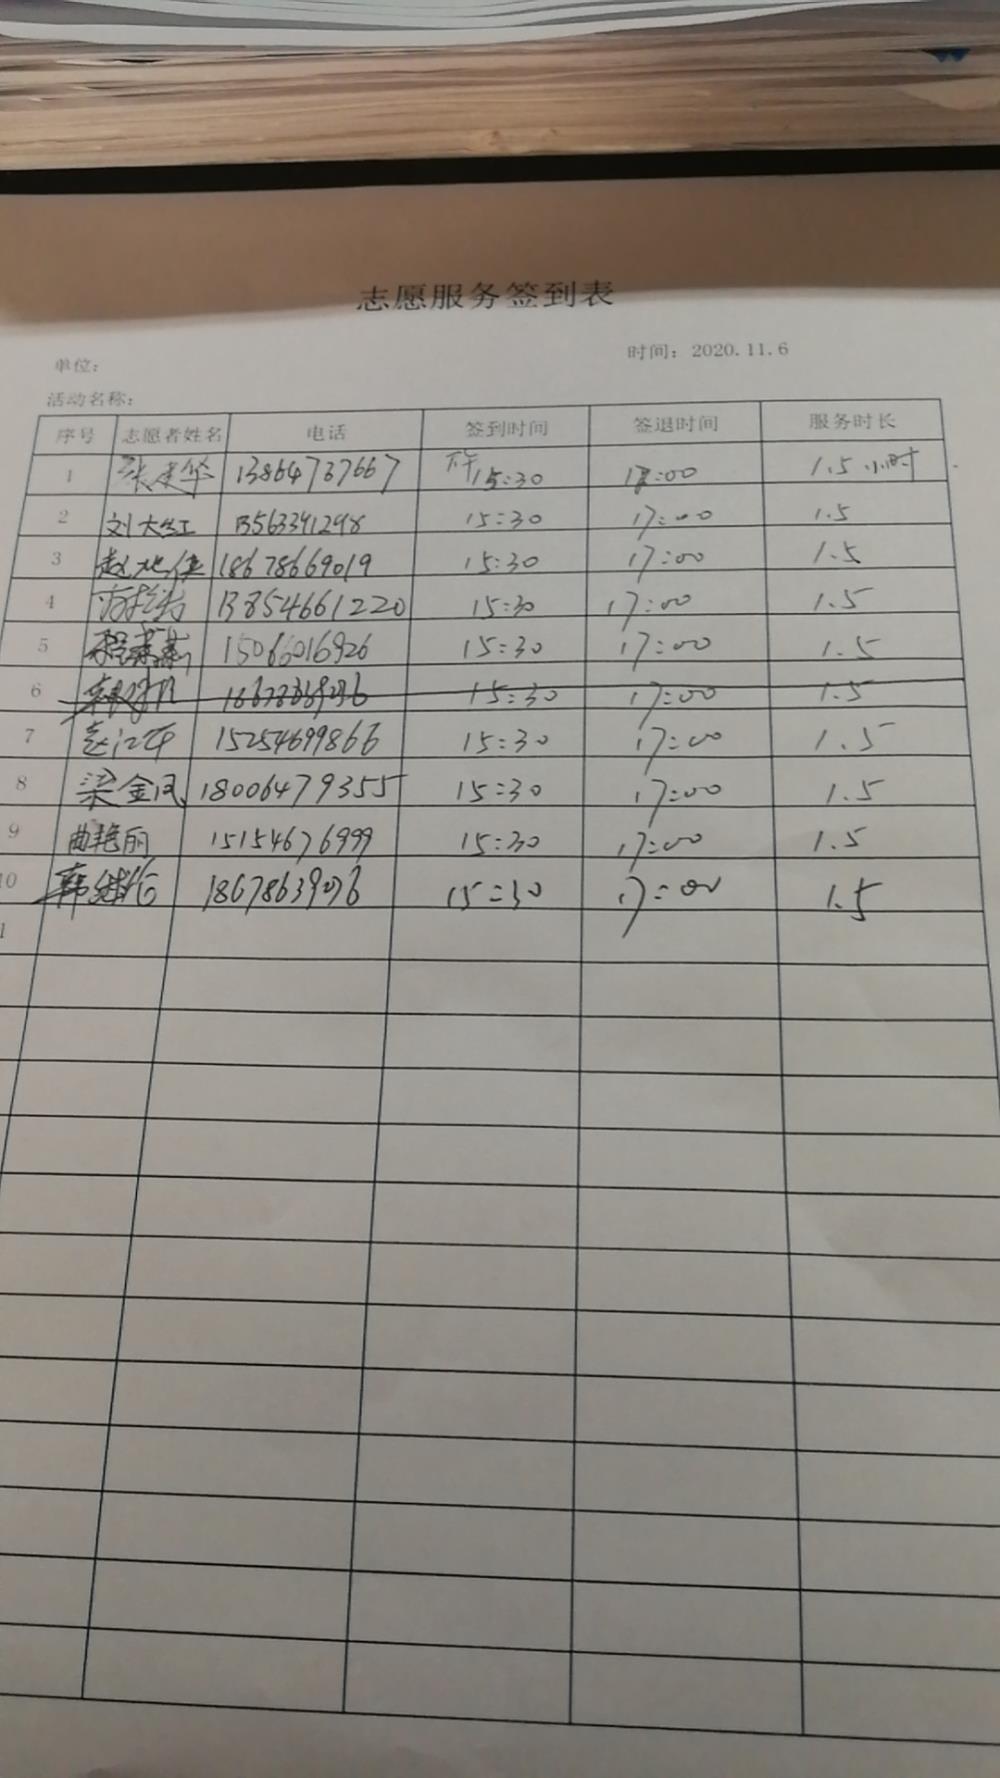 志愿服务签到表
单位: 时间: 2020.11.6
活动名称:
序号 志愿者姓名 电话 签到时间 签退时间 服务时长
1 张建华 13864737667 下午15:30 17:00 1.5小时
2 刘大红 13563391298 15:30 17:00 1.5
3 赵 18678669019 15:30 17:00 1.5
4 13854661220 15:30 17:00 1.5
5 15066016926 15:30 17:00 1.5
6 15:30 17:00 1.5
7 赵江华 15254699866 15:30 17:00 1.5
8 梁金凤 18006479355 15:30 17:00 1.5
9 曲艳丽 15154676999 15:30 17:00 1.5
10 韩 18678639036 15:30 17:00 1.5